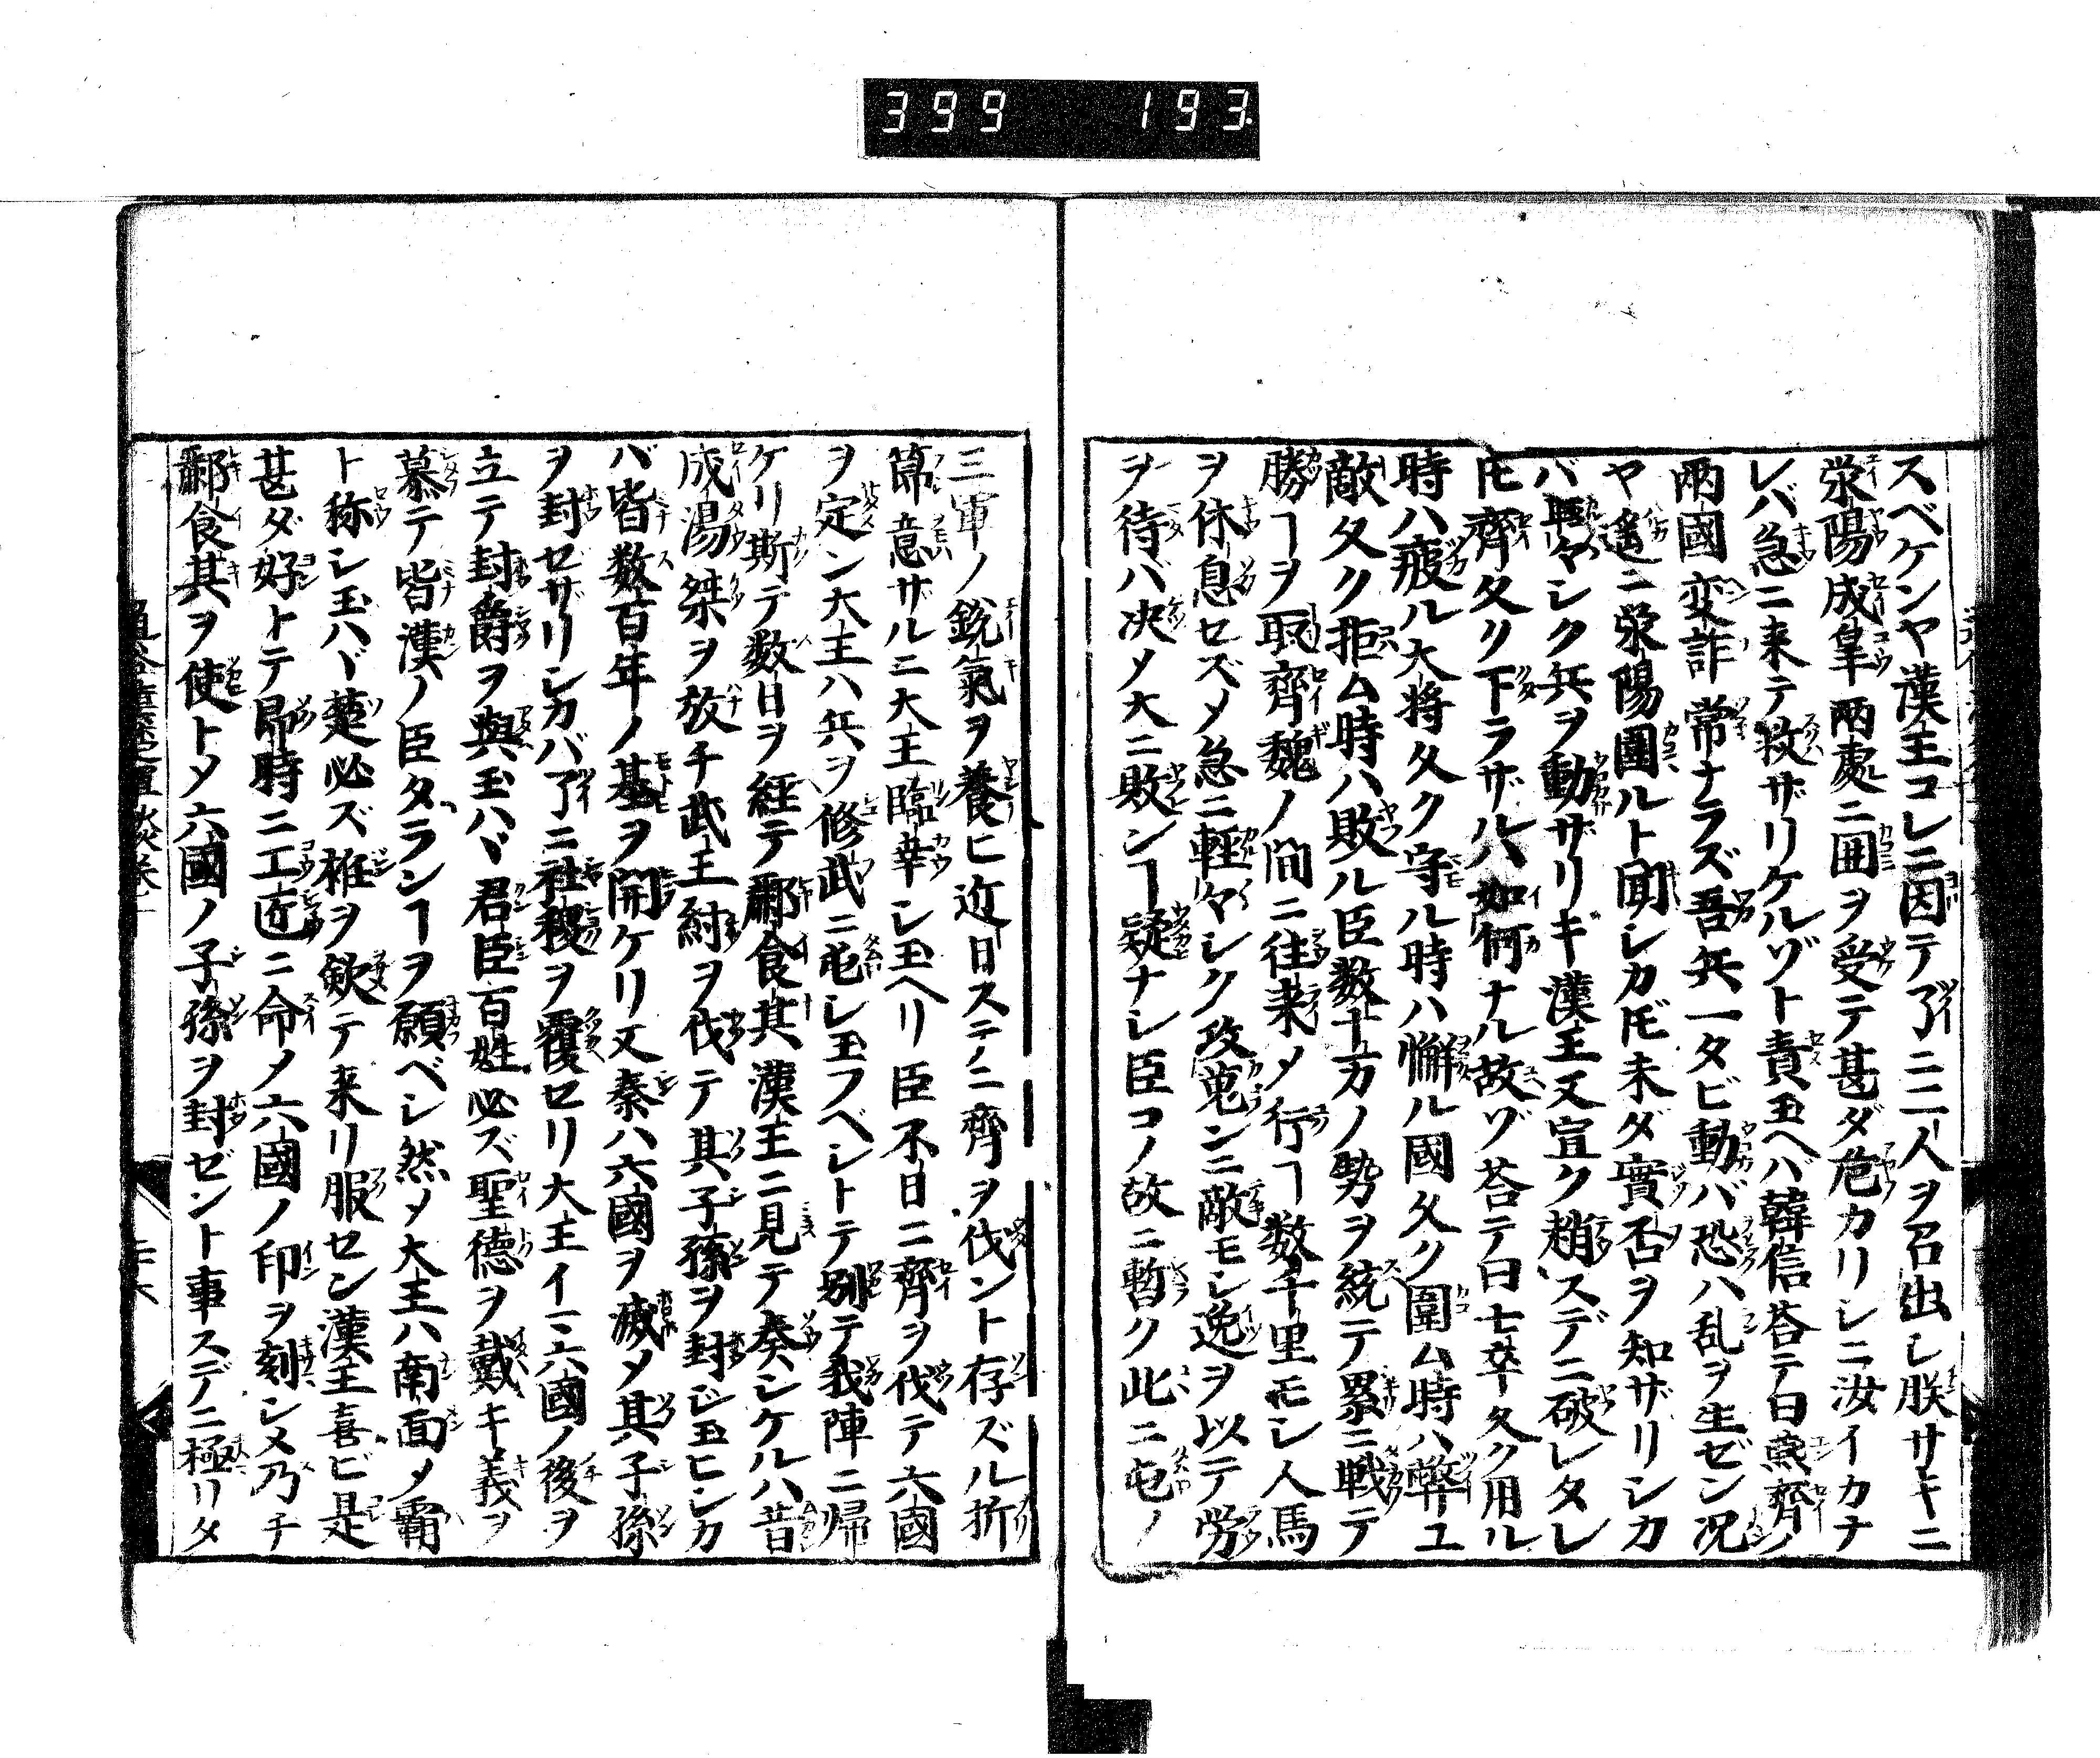 399 193
スベケンヤ漢王コレニ因テ了ニ二人ヲ召出シ朕サキニ
滎陽成皐両處ニ囲ヲ受テ甚ダ危カリシニ汝イカナ
レバ急ニ来テ救ザリケルゾト責玉ヘバ韓信荅テ曰燕齊ノ
兩國変詐常ナラズ吾兵一タビ動バ恐ハ乱ヲ生ゼン况
ヤ遙ニ滎陽圍ルト聞シカ𪜈未ダ實否ヲ知ザリシカ
バ輙マシク兵ヲ動ザリギ漢王又宣ク趙スデニ破レタレ
𪜈齊久ク下ラザルハ如何ナル故ゾ荅テ曰士卒久ク用ル
時ハ疲ル大将久ク守ル時ハ懈ル國久ク圍ム時ハ弊ユ
敵久ク拒ム時ハ敗ル臣数十万ノ勢ヲ統テ累ニ戦テ
勝ヿヲ取齊魏ノ間ニ往来メ行ヿ数千里モシ人馬
ヲ休息セズメ急ニ軽々マシク攻寇ンニ敵モシ逸ヲ以テ労
ヲ待バ决メ大ニ敗ンヿ疑ナシ臣コノ故ニ暫ク此ニ屯ノ
三軍ノ鋭氣ヲ養ヒ近日ステニ齊ヲ伐ント存ズル折
節意ザルニ大王臨幸シ玉ヘリ臣不日ニ齊ヲ伐テ六國
ヲ定ン大王ハ兵ヲ修武ニ屯シ玉フベシトテ別テ我陣ニ帰
ケリ斯テ数日ヲ経テ酈食其漢王ニ見テ奏シケルハ昔
成湯桀ヲ放チ武王紂ヲ伐テ其子孫ヲ封ジ玉ヒシカ
バ皆数百年ノ基ヲ開ケリ又秦ハ六國ヲ滅メ其子孫
ヲ封ゼザリシカバ了ニ社稷ヲ覆セリ大王イマ六國ノ後ヲ
立テ封爵ヲ與玉ハヾ君臣百姓必ズ聖徳ヲ戴キ義ヲ
慕テ皆漢ノ臣タランヿヲ願ベシ然メ大王ハ南面メ霸
ト称シ玉ハヾ楚必ズ袵ヲ歛テ来リ服セン漢王喜ビ是
甚ダ好トテ即時ニ工匠ニ命メ六國ノ印ヲ刻シメ乃チ
酈食其ヲ使トメ六國ノ子孫ヲ封ゼント事スデニ極リタ